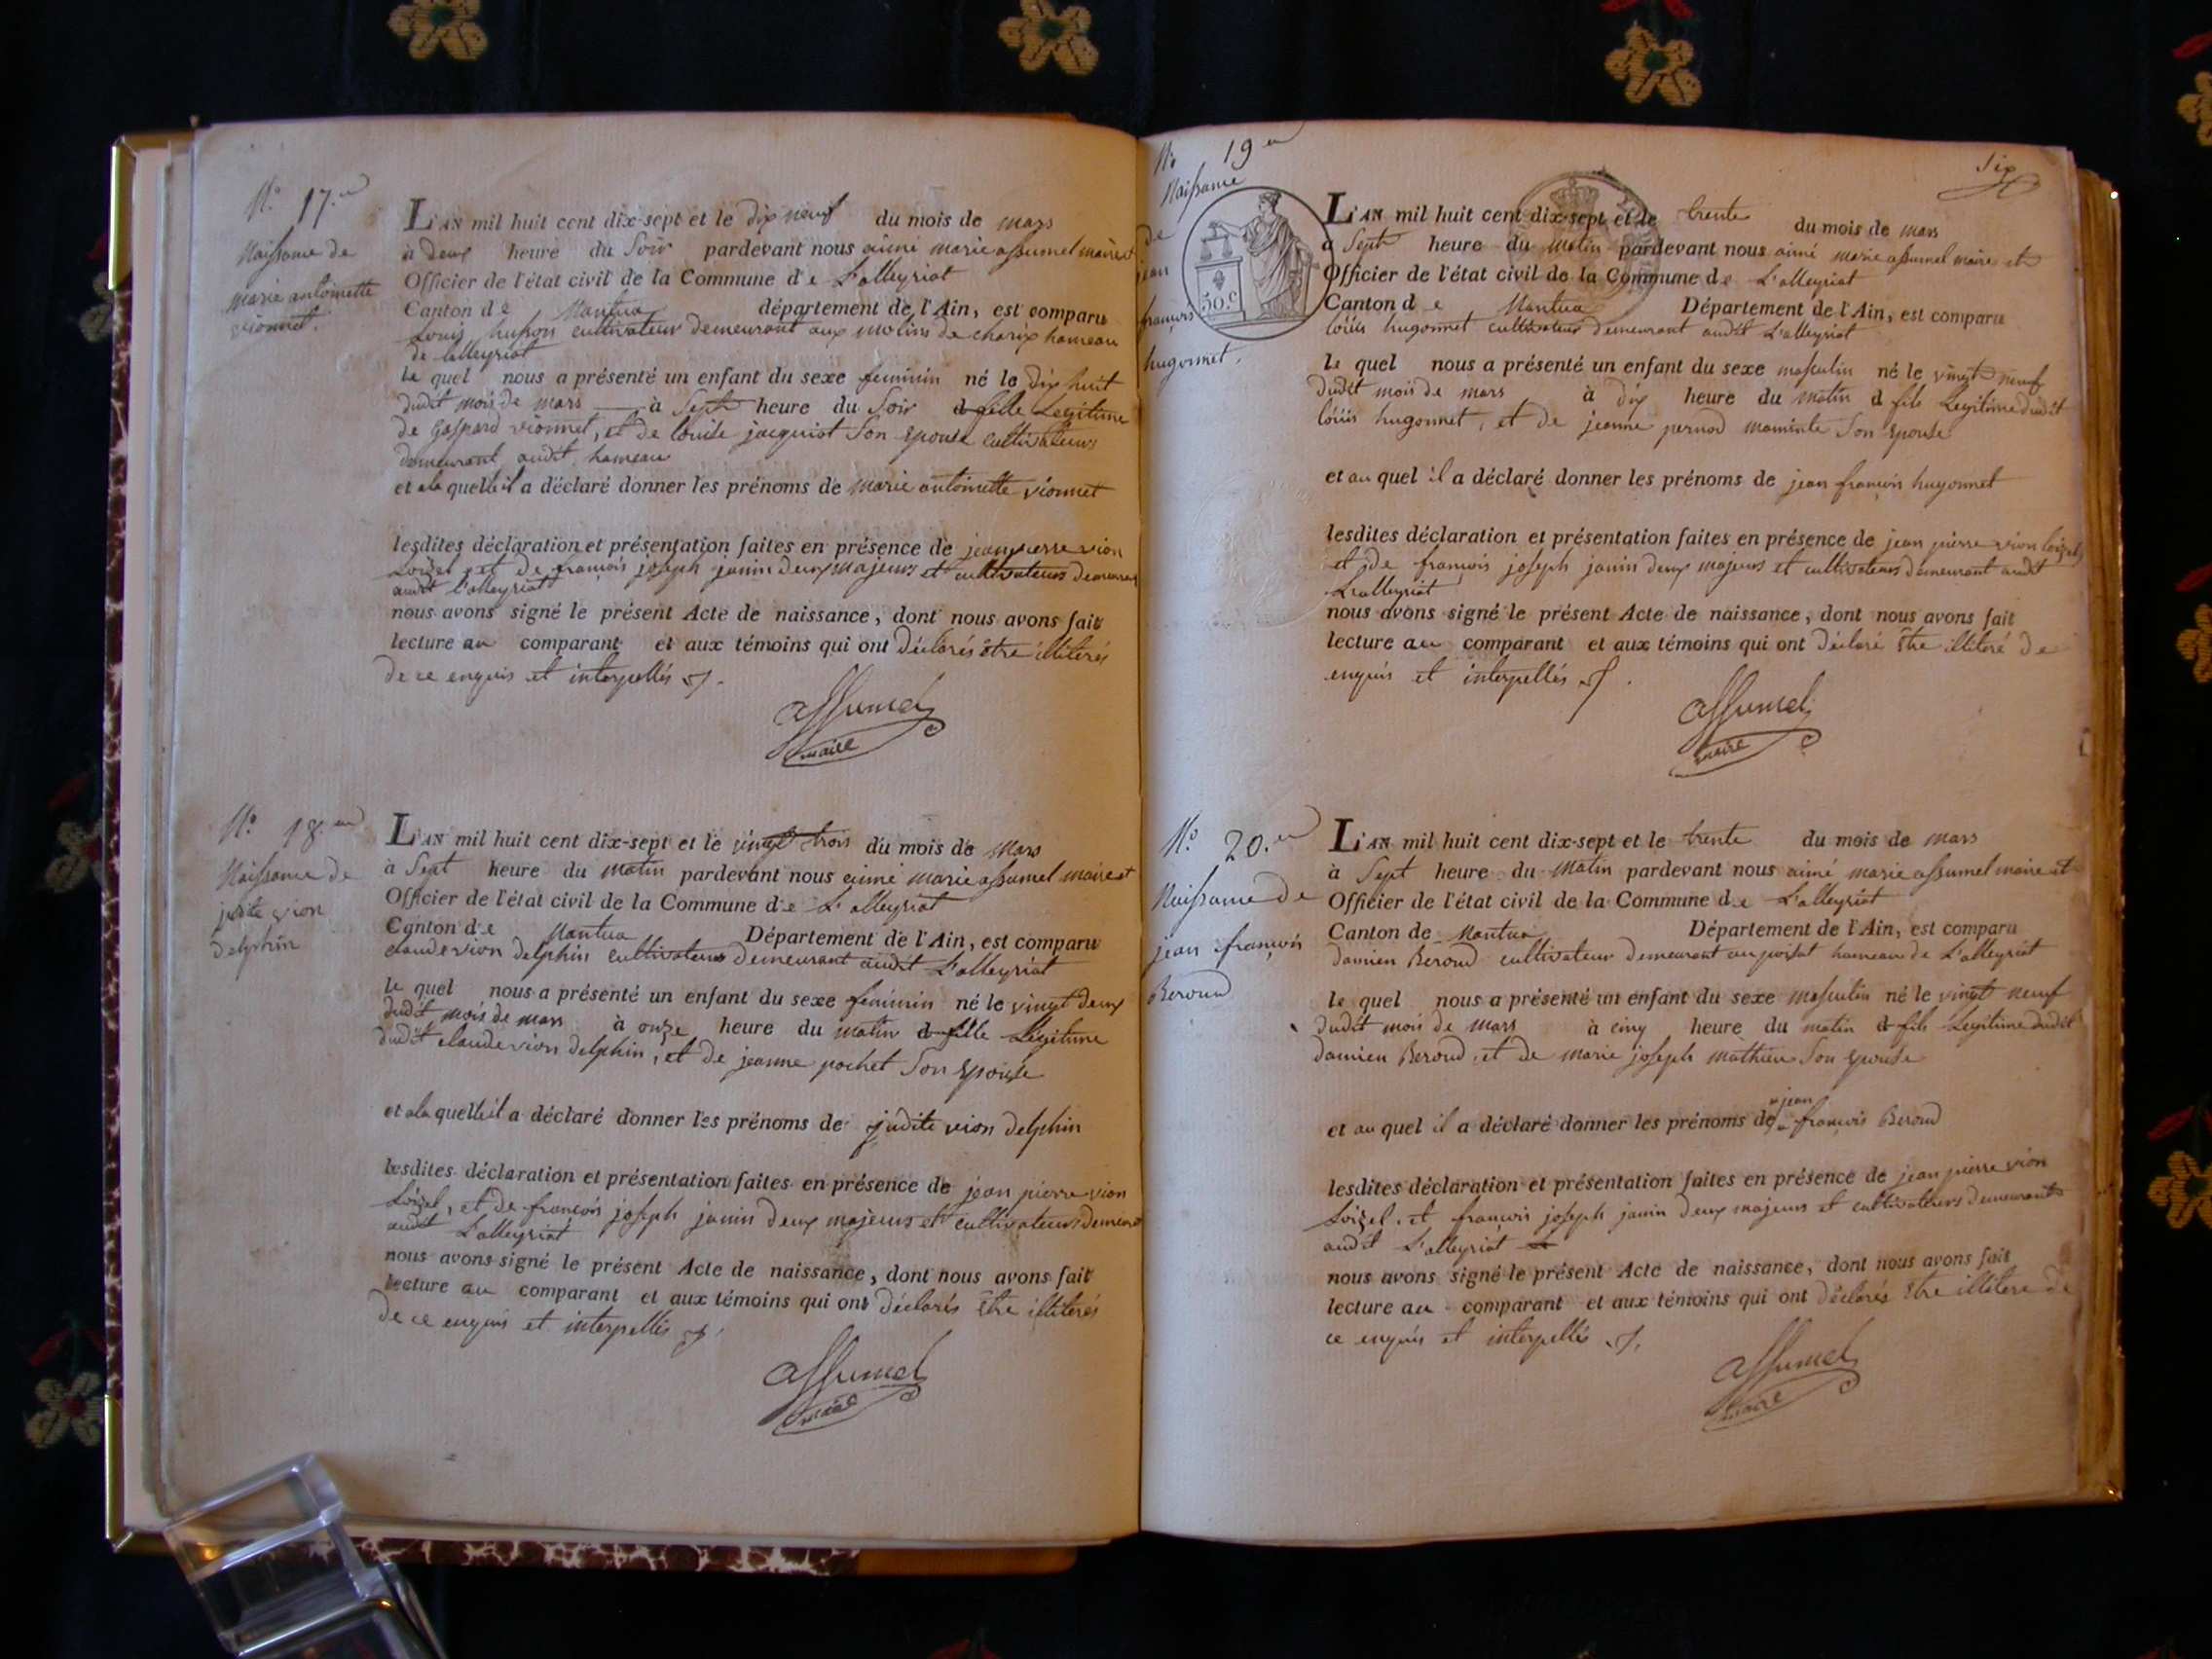 N.o 17.
Naissance de
marie antoinette
vionnet.
L'AN mil huit cent dix-sept et le dix neuf du mois de mars
à deux heure du Soir pardevant nous aimé marie assumel maire et
Officier de l'état civil de la Commune de L'alleyriat
Canton de Mantua département de l'Ain, est comparu
Louis cultivateur demeurant aux molins de charix hameau
de lalleyriat
le quel nous a présenté un enfant du sexe feminin né le dix huit
dudit mois de mars à Sept heure du Soir fille Legitime
de gaspard vionnet, et de louise jacquiot Son epouse cultivateurs
demeurant audit hameau
et a la quelle il a déclaré donner les prénoms de marie antoinette vionnet
lesdites déclaration et présentation faites en présence de jean pierre vion
Loizel et de françois joseph janin deux majeurs et cultivateurs demeurant
audit l'alleyriat
nous avons signé le présent Acte de naissance, dont nous avons fait
lecture au comparant et aux témoins qui ont déclarés être illiterés
de ce enquis et interpellés
assumel
maire
N.o 18.
Naissance de
vion
delphin
L'AN mil huit cent dix-sept et le vingt trois du mois de Mars
à Sept heure du matin pardevant nous aimé marie assumel maire et
Officier de l'état civil de la Commune de L'alleyriat
Canton de Mantua Département de l'Ain, est comparu
claude vion delphin cultivateur demeurant audit L'alleyriat
le quel nous a présenté un enfant du sexe feminin né le vingt deux
dudit mois de mars à onze heure du matin fille Légitime
dudit claude vion delphin, et de jeanne pochet Son epouse
et a la quelle il a déclaré donner les prénoms de judite vion delphin
lesdites déclaration et présentation faites en présence de jean pierre vion
Loizel, et de françois joseph janin deux majeurs et cultivateurs demeurant
audit L'alleyriat
nous avons signé le présent Acte de naissance, dont nous avons fait
lecture au comparant et aux témoins qui ont déclarés être illiterés
de ce enquis et interpellés
assumel
maire
Six
No 19
Naissance
de
jean
françois
hugonnet.
50.c
L'AN mil huit cent dix-sept et le trente du mois de mars
à Sept heure du matin pardevant nous aimé marie assumel maire et
Officier de l'état civil de la Commune de L'alleyriat
Canton de Mantua Département de l'Ain, est comparu
louis hugonnet cultivateur demeurant audit L'alleyriat
le quel nous a présenté un enfant du sexe masculin né le vingt neuf
dudit mois de mars à dix heure du matin fils Legitime dudit
louis hugonnet, et de jeanne pernod Son epouse
et au quel il a déclaré donner les prénoms de jean françois hugonnet
lesdites déclaration et présentation faites en présence de jean pierre vion loizel
et de françois joseph janin deux majeurs et cultivateurs demeurant audit
L'alleyriat
nous avons signé le présent Acte de naissance, dont nous avons fait
lecture au comparant et aux témoins qui ont déclaré être illiteré de
enquis et interpellés
assumel
maire
N.o 20.
Naissance de
jean françois
Beroud
L'AN mil huit cent dix-sept et le trente du mois de mars
à Sept heure du matin pardevant nous aimé marie assumel maire et
Officier de l'état civil de la Commune de L'alleyriat
Canton de Mantua Département de l'Ain, est comparu
damien Beroud cultivateur demeurant au poisat hameau de L'alleyriat
le quel nous a présenté un enfant du sexe masculin né le vingt neuf
dudit mois de mars à cinq heure du matin fils Legitime dudit
damien Beroud, et de marie joseph mathieu Son epouse
et au quel il a déclaré donner les prénoms de jean françois Beroud
lesdites déclaration et présentation faites en présence de jean pierre vion
Loizel et françois joseph janin deux majeurs et cultivateurs demeurant
audit L'alleyriat
nous avons signé le présent Acte de naissance, dont nous avons fait
lecture au comparant et aux témoins qui ont déclarés être illitere de
ce enquis et interpellés
assumel
maire